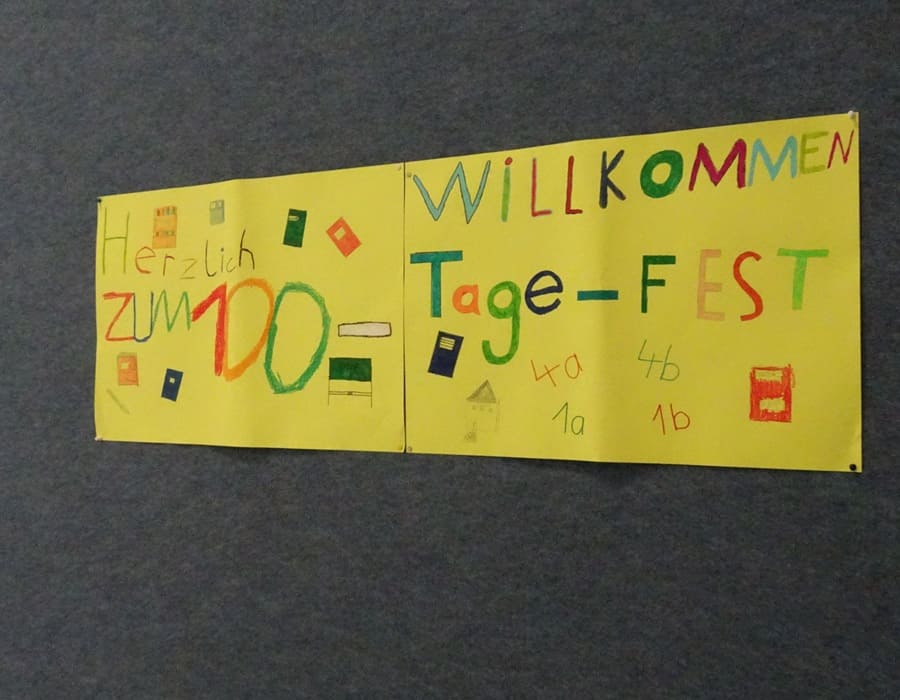 Herzlich WiLLKOMMEN
ZUM 100- Tage-FEST
4a 4b
1a 1b